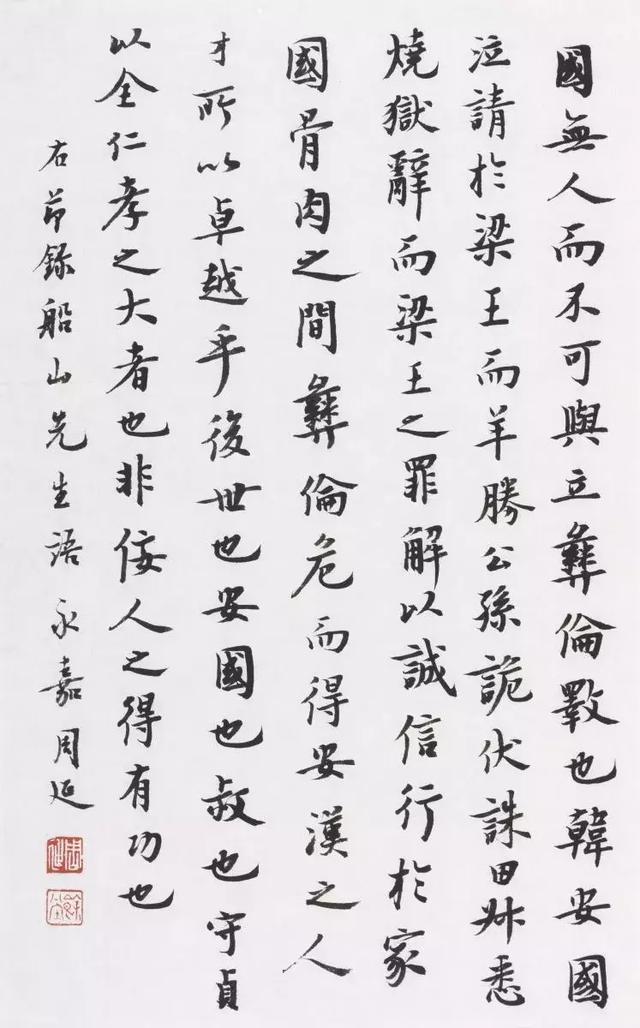 國無人而不可與立彝倫斁也韓安國
泣請於梁王而羊勝公孫詭伏誅田叔悉
燒獄辭而梁王之罪解以誠信行於家
國骨肉之間彝倫危而得安漢之人
才所以卓越乎後世也安國也叔也守貞
以全仁孝之大者也非佞人之得有功也
右節錄船山先生語永嘉周延